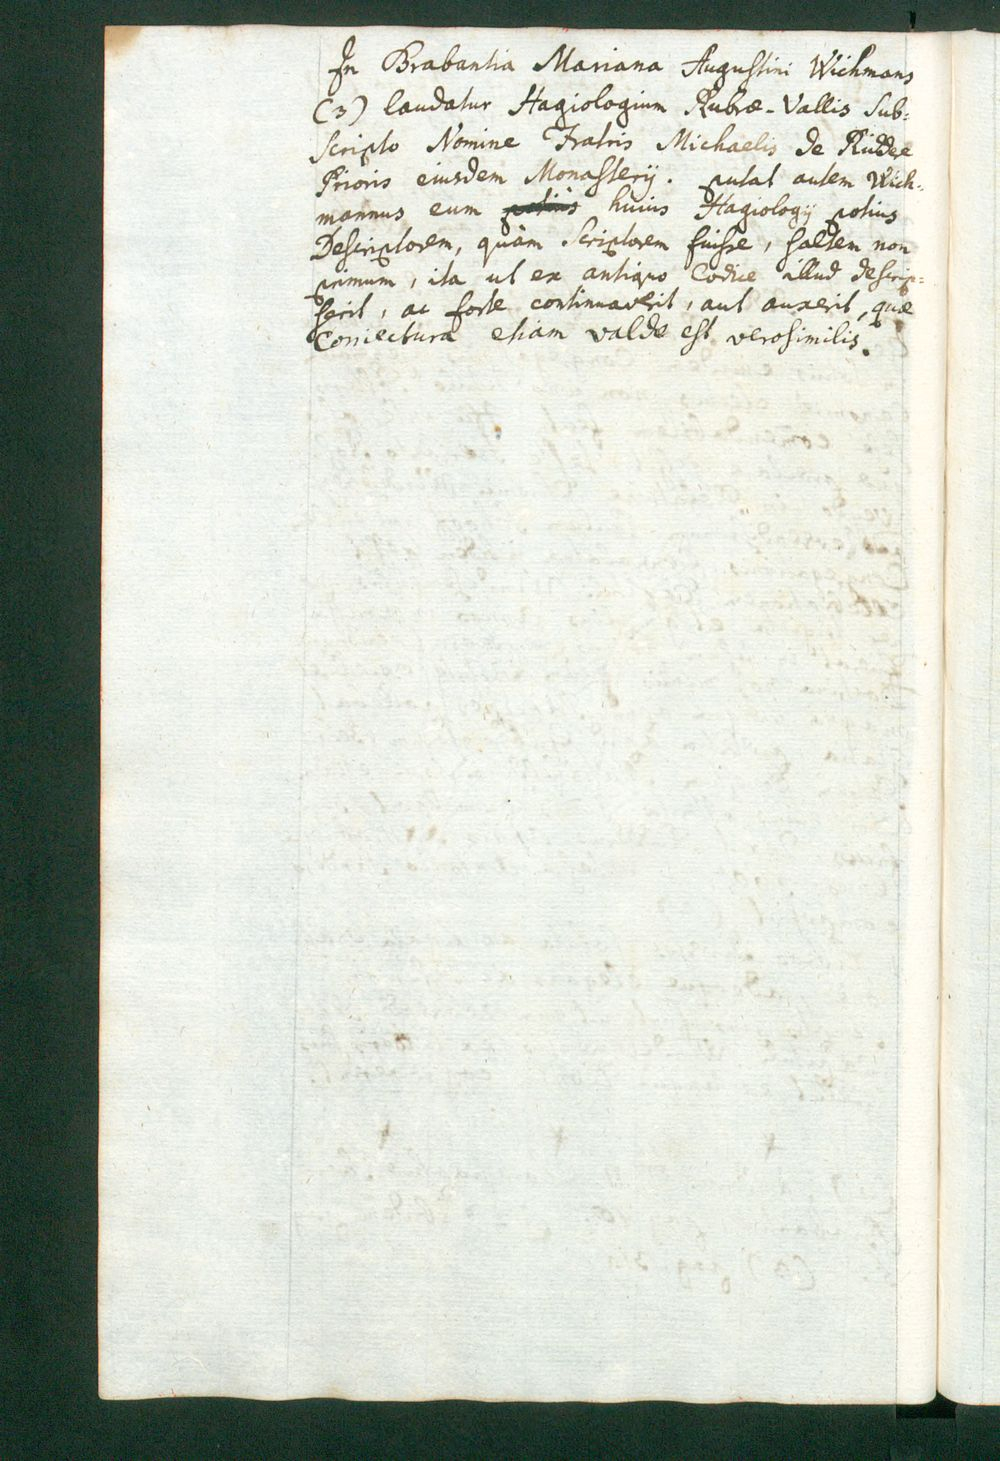 In Brabantia Mariana Augustini Wichmans
(3) laudatur Hagiologium Rubræ-Vallis sub-
scripto Nomine Fratris Michaelis de Ridder
Prioris eiusdem Monasterij. putat autem Wich-
mannus eum potius huius Hagiologij potius
Descriptorem, quàm Scriptorem fuisse, saltem non
primum, ita ut ex antiquo Codice illud descrip-
serit, ac forte continuaverit, aut auxerit, quæ
Coniectura etiam valde est verosimilis.